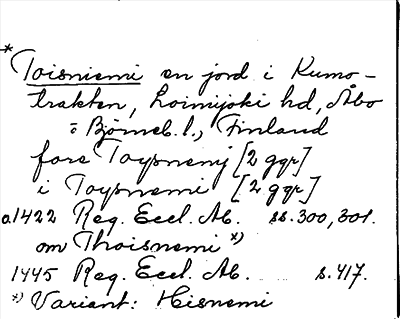 * Toisniemi en jord i Kumo-
trakten, Loimijoki hd, Åbo
=Björneb. l., Finland
fore Toysnemj [2 ggr]
i Toysnemi [2 ggr]
a1422 Reg. Eccl. Ab. ss. 300, 301.
om Thoisnemi *)
1445 Reg. Eccl. Ab. s. 417.
*) Variant: Hisnemi